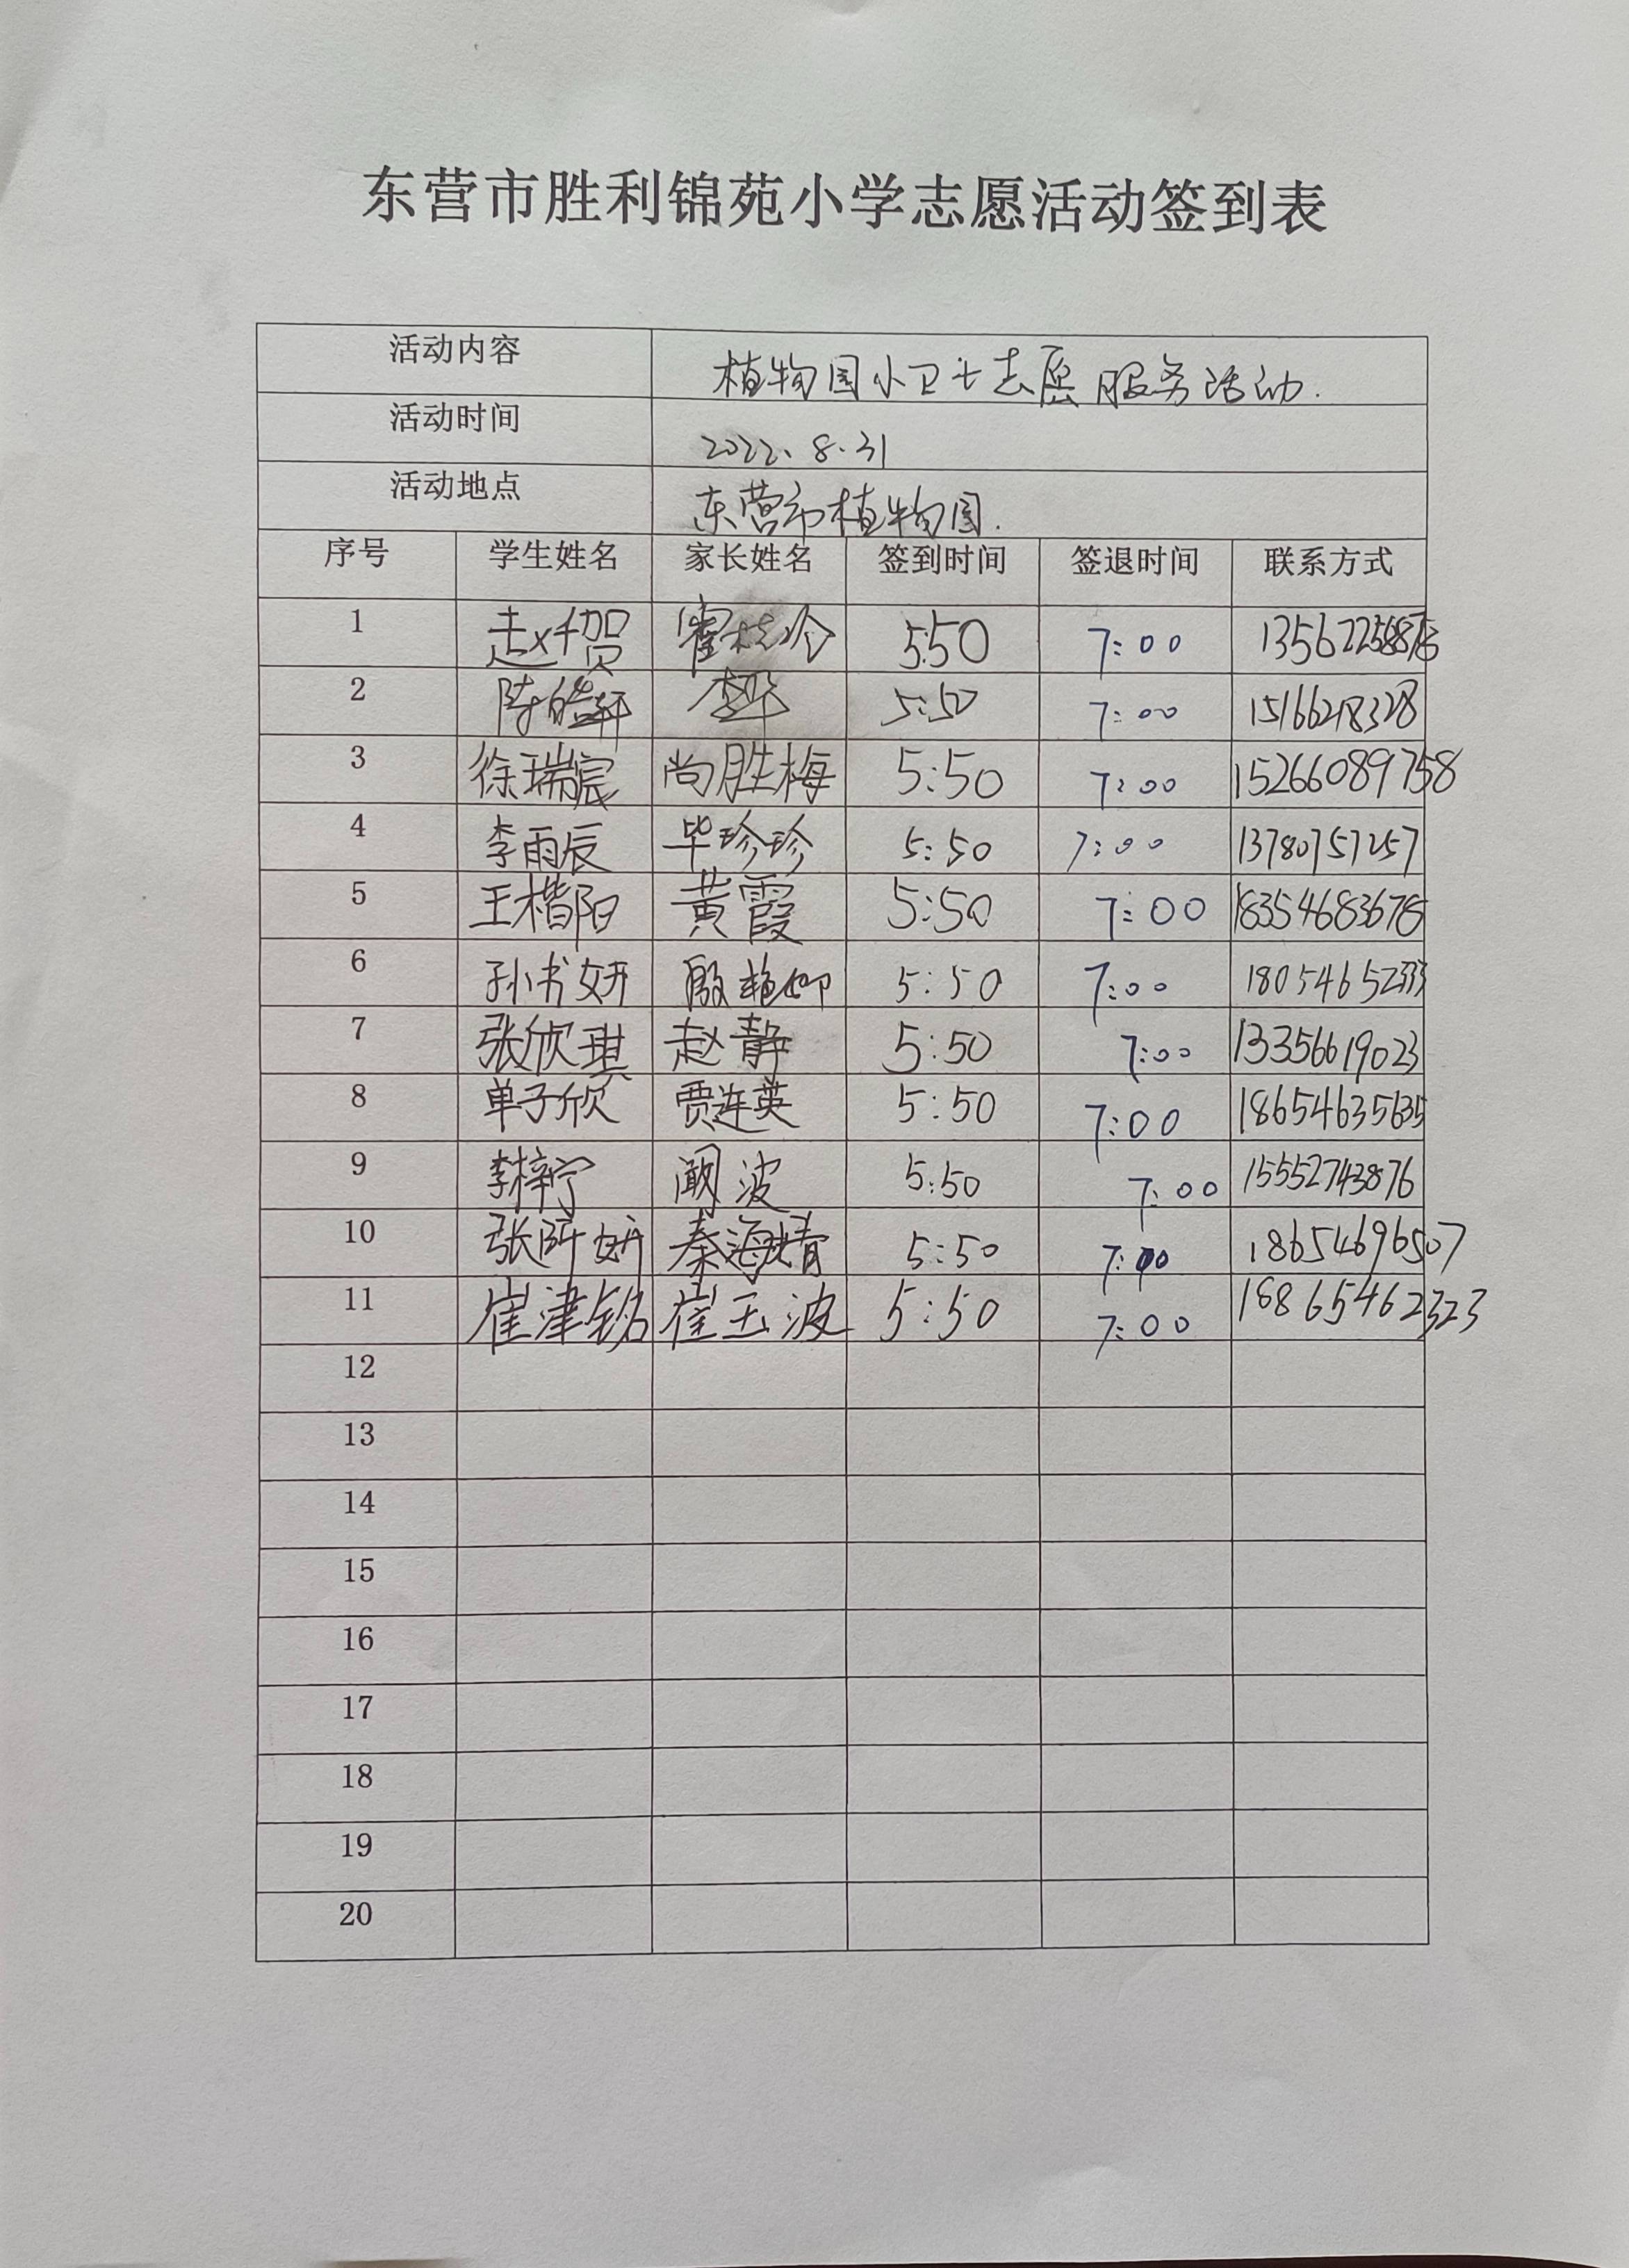 东营市胜利锦苑小学志愿活动签到表
活动内容 植物园小卫士志愿服务活动.
活动时间 2022、8.31
活动地点 东营市植物园.
序号 学生姓名 家长姓名 签到时间 签退时间 联系方式
1 5:50 7:00
2 陈皓轩 5:50 7:00 15166218328
3 徐瑞宸 尚胜梅 5:50 7:00 15266089758
4 李雨辰 毕珍珍 5:50 7:00 13780757257
5 王楷阳 黄霞 5:50 7:00 18354683678
6 孙书妍 5:50 7:00
7 张欣琪 赵静 5:50 7:00 13356619023
8 单子欣 贾连英 5:50 7:00 18654635635
9 李梓宁 阚波 5:50 7:00 15552743876
10 秦海婧 5:50 7:00 18654696507
11 崔津铭 崔玉波 5:50 7:00 18865462323
12
13
14
15
16
17
18
19
20